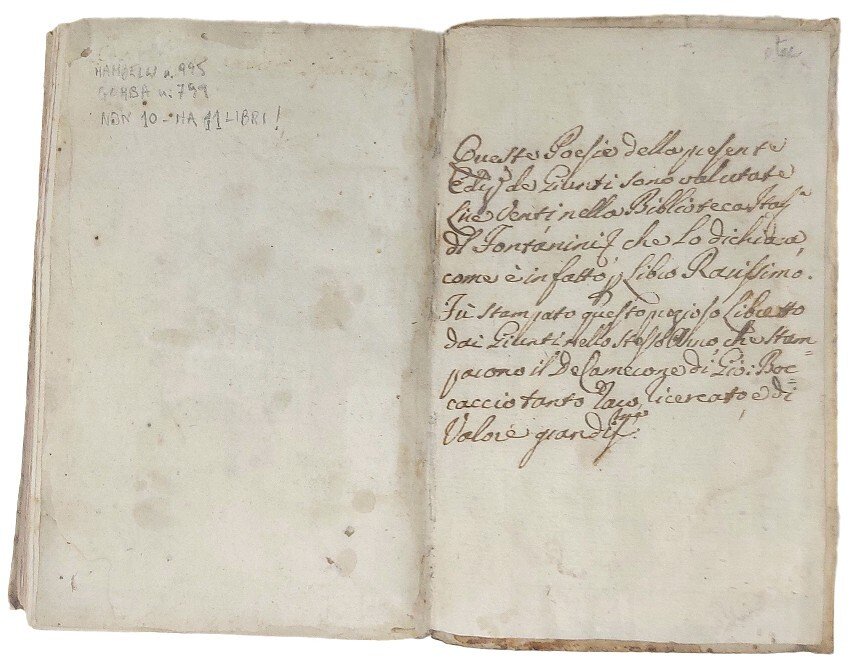 n. 995
GAMBA n. 799
NON 10 - MA 11 LIBRI!
Queste Poesie della presente
Ediz. de Giunti sono valutate
Lire Venti nella Biblioteca Ital.
del Fontanini, che lo dichiara,
come è infatto, Libro Rarissimo.
Fù stampato questo prezioso Libretto
dai Giunti nello stesso Anno che stam=
parono il Decamerone di Gio: Boc=
caccio tanto raro, ricercato, e di
Valore grandis.mo